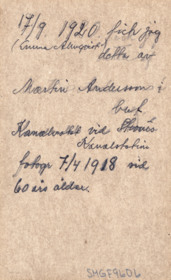 17/9 1920 fick jag
(Emma Almqvist)
detta av
Martin Andersson i
Kanalvakt vid
Kanalstation
fotogr 7/4 1918 vid
60 års ålder.
SMGF9606